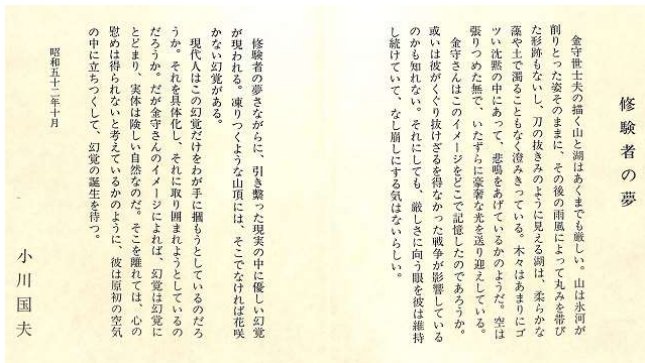 修験者の夢
金守世士夫の描く山と湖はあくまでも厳しい。山は氷河が
削りとった姿そのままに、その後の雨風によって丸みを帯び
た形跡もないし、刀の抜きみのように見える湖は、柔らかな
藻や土で濁ることもなく澄みきっている。木々はあまりにゴ
ツい沈黙の中にあって、悲鳴をあげているかのようだ。空は
張りつめた無で、いたずらに豪奢な光を送り迎えしている。
金守さんはこのイメージをどこで記憶したのであろうか。
或いは彼がくぐり抜けざるを得なかった戦争が影響している
のかも知れない。それにしても、厳しさに向う眼を彼は維持
し続けていて、なし崩しにする気はないらしい。
修験者の夢さながらに、引き繋った現実の中に優しい幻覚
が現われる。凍りつくような山頂には、そこでなければ花咲
かない幻覚がある。
現代人はこの幻覚だけをわが手に摑もうとしているのだろ
うか。それを具体化し、それに取り囲まれようとしているの
だろうか。だが金守さんのイメージによれば、幻覚は幻覚に
とどまり、実体は険しい自然なのだ。そこを離れては、心の
慰めは得られないと考えているかのように、彼は原初の空気
の中に立ちつくして、幻覚の誕生を待つ。
昭和五十二年十月
小川国夫